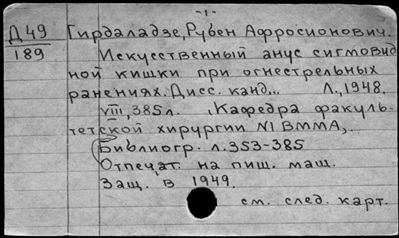 -1-
Д 49 Гирдаладзе, Рубен Афросионович.
189 Искусственный анус сигмовид
ной кишки при огнестрельных
ранениях. Дисс. канд... Л., 1948.
VIII, 385 л. (Кафедра факуль-
тетской хирургии N1 ВММА).
Библиогр. л. 353-385
Отпечат. на пиш. маш.
Защ. в 1949.
см. след. карт.